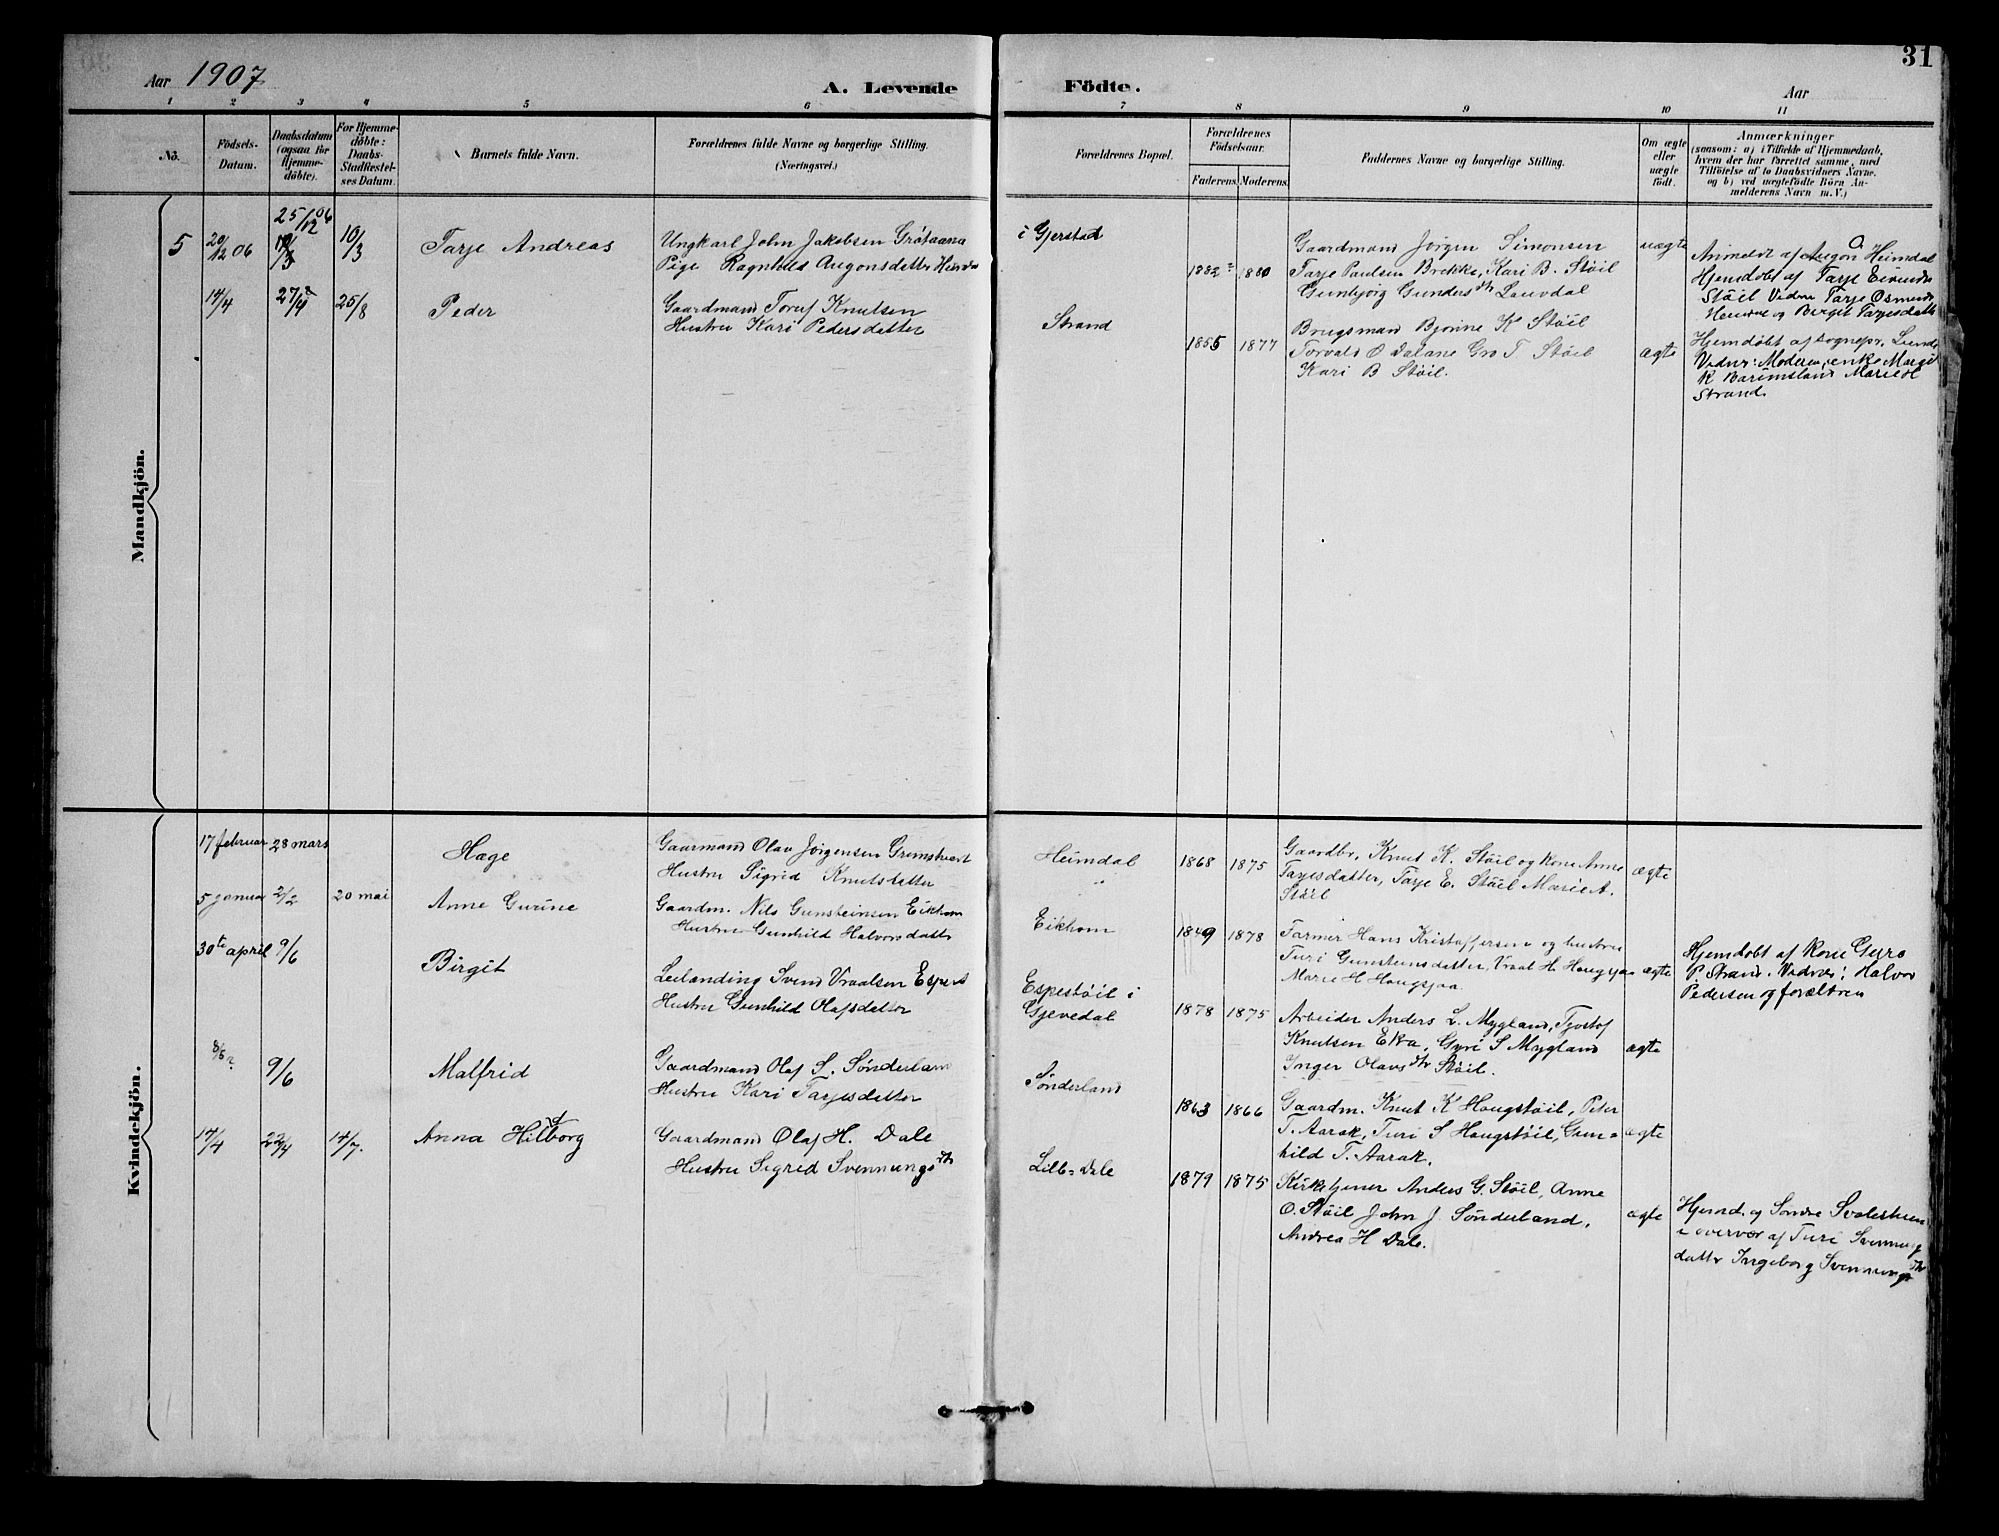 31
Aar 1907
A. Levende
Födte.
Aar
1 2 3 4 5 6 7 8 9 10 11
No.
Födsels-
Datum.
Daabsdatum
(ogsaa for
Hjemme-
döbte).
For Hjemme-
döbte:
Daabs-
Stadfæstel-
ses Datum.
Barnets fulde Navn.
Forældrenes fulde Navne og borgerlige Stilling.
(Næringsvei.)
Forældrenes Bopæl.
Forældrenes
Födselsaar.
Faderens. Moderens.
Faddernes Navne og borgerlige Stilling.
Om ægte
eller
uægte
födt.
Anmærkninger
(saasom: a) i Tilfælde af Hjemmedaab,
hvem der har forrettet samme, med
Tilföielse af to Daabsvidners Navne.
og b) ved uægtefödte Börn An-
melderens Navn m. V.)
Mandkjön.
5
20/12 06
25/12 06
10/3
Tarje Andreas
Ungkarl John Jakobsen Grötaana
Pige Ragnhild Augonsdatter Heimdal
i Gjerstad
1882 1880
Gaardmand Jörgen Simonsen
Tarje Paulsen Brekke, Kari B. Stöil
Gunbjörg Gunders dtr Lauvdal
uægte
Anmeldt af Augon Heimdal
Hjemdöbt af Tarje Eivinds
Stöil Vidne Tarje Osmunds
og Birgit Tarjesdatter
14/4
27/4
25/8
Peder
Gaardmand Toruf Knutsen
Hustru Kari Pedersdatter
Strand
1855 1877
Brugsmand Bjorine K Stöil
Torvald O Dalane Gro T. Stöil
Kari B Stöil.
ægte
Hjemdöbt af sognepr. Lund
Vidner: Moderen, enke Margit
K Barimsland Marie H
Strand.
Kvindekjön.
17 februar
28 mars
Hæge
Gaarmand Olav Jörgensen Grimstveit
Hustru Sigrid Knutsdatter
Heimdal
1868 1875
Gaardbr. Knut K. Stöil og kone Anne
Tarjesdatter, Tarje E. Stöil Marie A.
Stöil
ægte
5 januar
2/2
20 mai
Anne Gurine
Gaardm. Nils Gunsteinsen Eikhom
Hustru Gunhild Halvorsdatter
Eikhom
1849 1878
Farmer Hans Kristoffersen og hustru
Turi Gunsteinsdatter, Vraal H. Haugsjaa
Marie H Haugsjaa.
ægte
Hjemdöbt af kone Guro
P. Strand. Vidner: Halvor
Pedersen og forældren
30te april
9/6
Birgit
Leilænding Svend Vraalsen Espest
Hustru Gunhild Olafsdatter
Espestöil i
Gjevedal
1878 1875
Arbeider Anders L. Mygland, Tjostof
Knutsen Eka, Gyri S Mygland
Inger Olavs dtr Stöil.
ægte
8/5
9/6
Malfrid
Gaardmand Olaf S. Sønderland
Hustru Kari Tarjesdatter
Sønderland
1863 1866
Gaardm. Knut K Haugstöil, Peter
T. Aarak, Turi S Haugstöil, Gun-
hild T. Aarak.
ægte
14/4
22/4
14/7.
Anna Hilborg
Gaardmand Olaf H. Dale
Hustru Sigrid Svennungs dtr
Lille-Dale
1879 1875
Kirketjener Anders G. Stöil, Anne
O. Stöil John J. Sønderland,
Andrea H Dale.
ægte
Hjemd. og Sondre
i overvær af Turi Svennung
datter Ingeborg Svennungs dtr